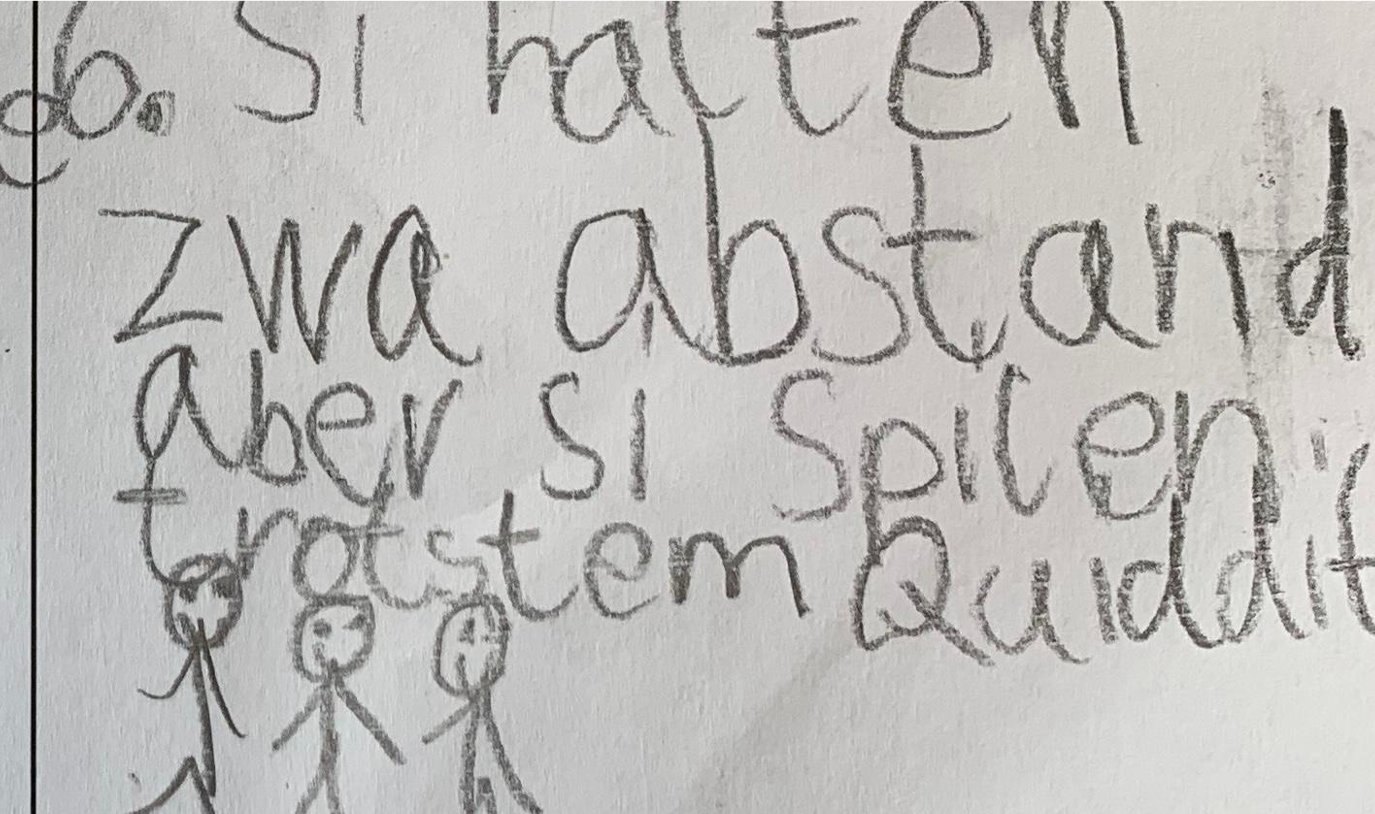 6. Si halten
zwa abstand
aber si Spilen
trotstem Quiddit